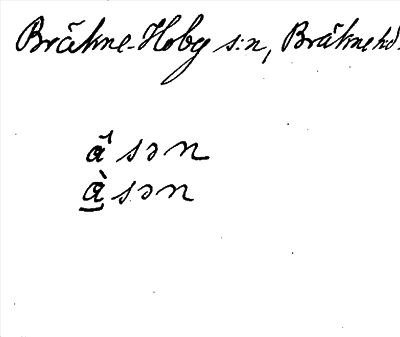 Bräkne-Hoby s:n, Bräkne hd.
a᷇ sən
à̲ sən